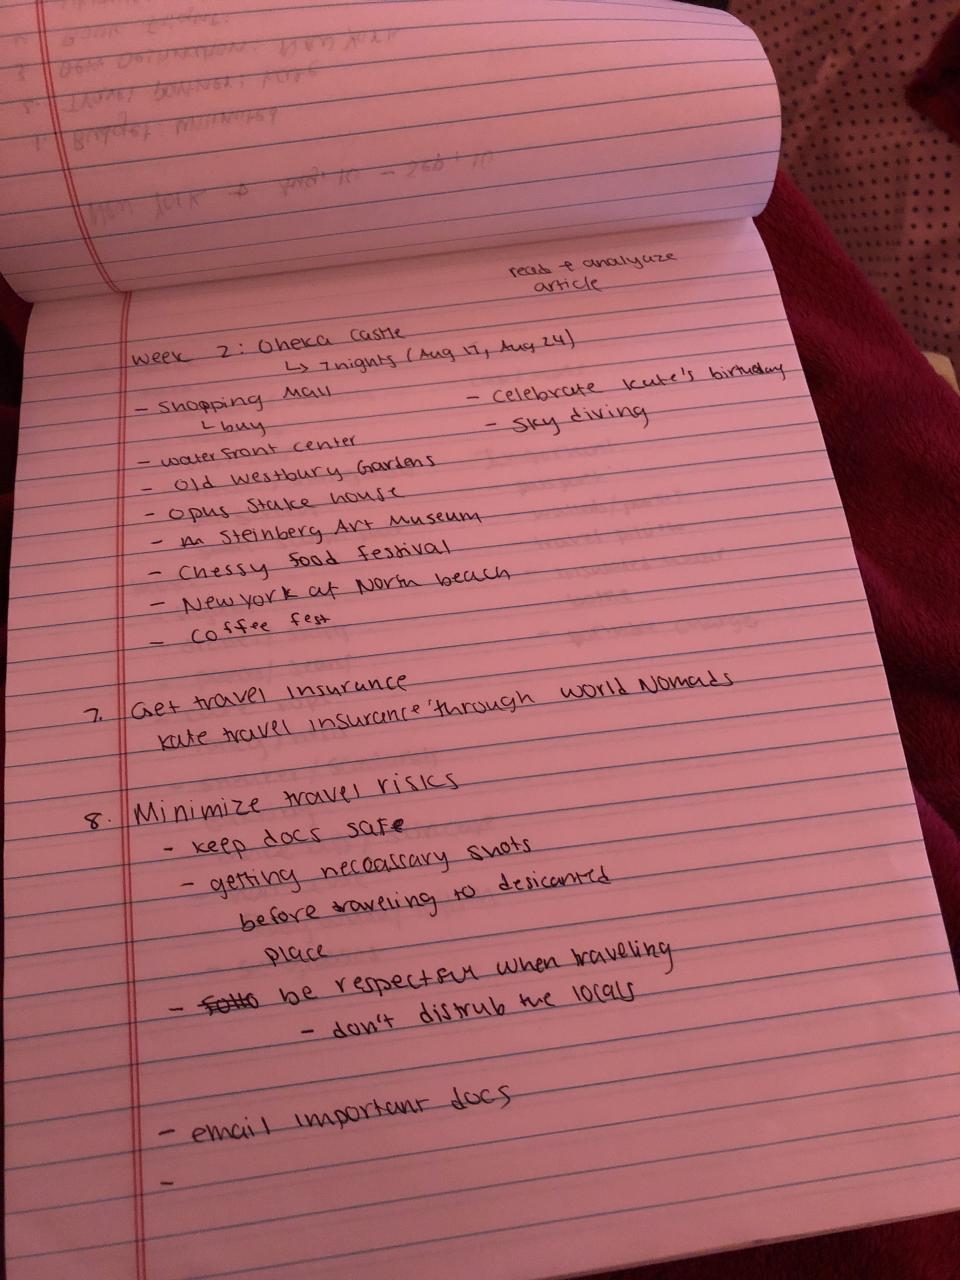 read + analyaze
article
week 2: Oheka Castle
↳ 7nights (Aug 17, Aug 24)
- Shopping Mall
└ buy
- water front center
- Old Westbury Gardens
- Opus Stake house
- m Steinberg Art Museum
- Chessy food festival
- New york at North beach
- Coffee fest
- celebrate Kate's birthday
- Sky diving
7. Get travel Insurance
Kate travel insurance through world Nomads
8. Minimize travel risks
- keep docs safe
- getting necoassary shots
before traveling to
place
- be respectful when traveling
- don't distrub the locals
- email important docs
-